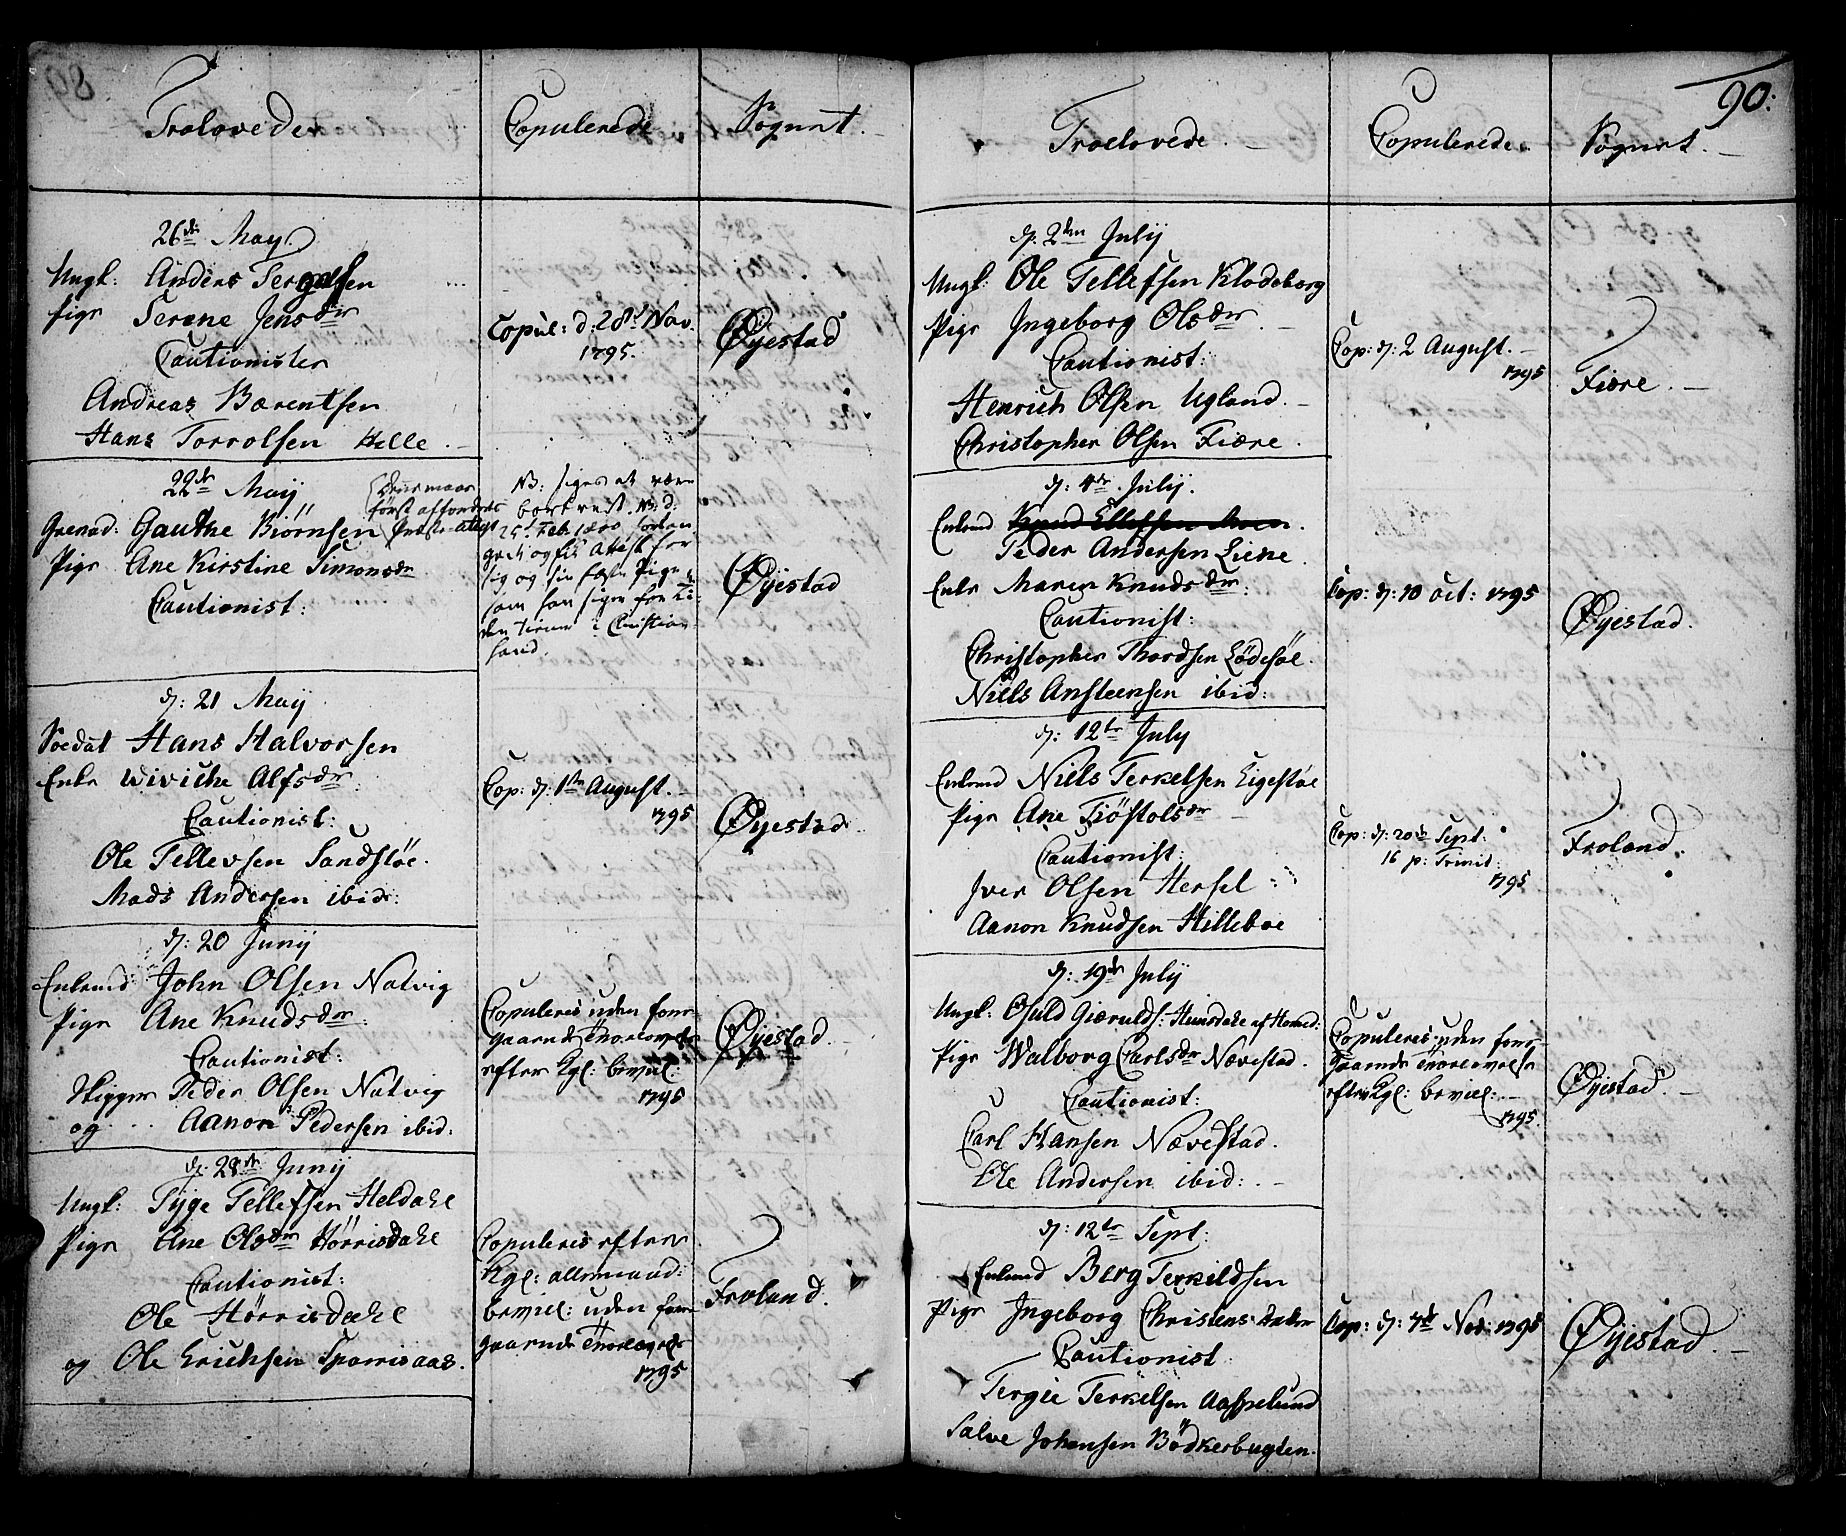 89
Trolovede
Copulerede
Sognet.
26de May
Ungk: Anders Tergelsen
Pige Serene Jensdr
Cautionister
Andreas Bærentsen
Hans Torrolsen Helle.
Copul: d: 28d Nov.
1795.
Øyestad
22de May
Grenad: Gauthe Biørnsen
Pige Ane Kirstine Simonsdr
Cautionist:
først affordres
Præste-Attest
NB: siges at være
bortreist. NB: d:
25t Feb: 1800
og fik Attest for
sig og sin fæste Pige
som han siger for
den Tiene i Christian-
sand.
Øyestad
d: 21 May
Soldat Hans Halvorsen
Enke Wiviche Alfsdr
Cautionist:
Ole Tellevsen Sandstøe.
Mads Andersen ibid:
Cop: d: 1ste August.
1795
Øyestad.
d: 20 Junij
Enkemd John Olsen Natvig
Pige Ane Knudsdr:
Cautionist:
Higgen Peder Olsen Natvig
og Aanon Pedersen ibid.
Copuleres uden fore-
gaaende Troelovelse
efter Kgl: bevil:
1795
Øyestad.
d: 28de Junij
Ungk: Tyge Tellefsen Heldahl
Pige Ane Olsdr Hørrisdahl
Cautionist:
Ole Hørrisdahl
og Ole Erichsen Sporrisaas.
Copuleres efter
Kgl: allernaad:
bevil: uden fore-
gaaende Troelovelse
1795
Froland.
90.
Troelovede.
Copulerede.
Sognet.
d: 2den July
Ungk: Ole Tellefsen Klodeborg
Pige Ingeborg Olsdr
Cautionist:
Henrich Olsen Ugland.
Christopher Olsen Fiære.
Cop: d: 2 August.
1795
Fiære.
d: 4de July.
Enkmd Knud Ellefsen Moen.
Peder Andersen Liene
Enke Maren Knudsdr:
Cautionist:
Christopher Thordsen Lødesøl.
Niels Ansteensen ibid:
Cop: d: 10 Oct: 1795
Øyestad.
d: 12te July
Enkmd Niels Terkelsen Eigestøe
Pige Ane Tiøstolsdr
Cautionist:
Iver Olsen Hersel
Aanon Knudsen Hilleboe
Cop: d: 20de Sept:
16 p: Trinit:
1795
Froland.
d: 19de July
Ungk: Osuld Giærulds: Heimdahl af Homed:
Pige Walborg Carlsdr Nævestad.
Cautionist:
Carl Hansen Nævestad.
Ole Andersen ibid:
Copuleres uden fore-
gaaende Troelovelse
efter Kgl: bevil:
1795.
Øyestad.
d: 12te Sept:
Enkmd Berg Terkildsen
Pige Ingeborg Christens Datter
Cautionist
Tergie Terkelsen Aasselund
Salve Johansen Bødkerbugten.
Cop: d: 7de Nov: 1795
Øyestad.